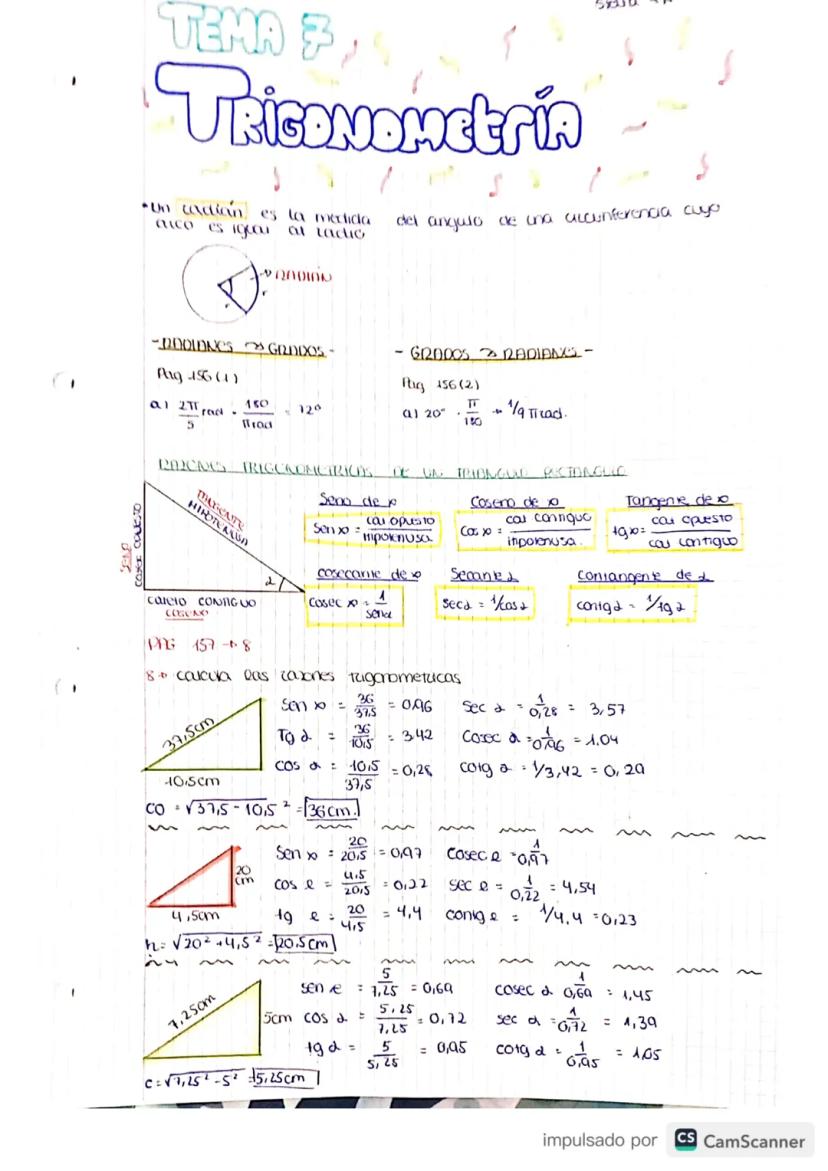 TEMA 7
TRIGONOMETRÍA
*Un radián es la medida del angulo de una circunferencia cuyo
arco es igual al radio
RADIÁN
-RADIANES → GRADOS-
- GRADOS → RADIANES -
Pag 156 (1)
Pag 156 (2)
a) 2π/5 rad · 180/π rad = 72º
a) 20º · π/180 → 1/9 π rad.
RAZONES TRIGONOMETRICAS DE UN TRIANGULO RECTANGULO
HIPOTENUSA
CATETO OPUESTO
CATETO CONTIGUO
COSENO
α
Seno de α
Sen α = cat opuesto / hipotenusa
Coseno de α
Cos α = cat contiguo / hipotenusa.
Tangente de α
tg α = cat opuesto / cat contiguo
cosecante de α
Cosec α = 1/senα
Secante α
sec α = 1/cos α
Contangente de α
contg α = 1/tg α
PAG 157 → 8
8 → calcula las razones trigonometricas
37,5cm
10,5cm
sen α = 36/37,5 = 0,96
Sec α = 1/0,28 = 3,57
Tg α = 36/10,5 = 3,42
Cosec α = 1/0,96 = 1,04
cos α = 10,5/37,5 = 0,28
cotg α = 1/3,42 = 0,29
CO = √37,5 - 10,5² = 36cm.
20 cm
4,5cm
sen α = 20/20,5 = 0,97
Cosec α = 1/0,97
cos α = 4,5/20,5 = 0,22
sec α = 1/0,22 = 4,54
tg α = 20/4,5 = 4,4
contg α = 1/4,4 = 0,23
h = √20² + 4,5² = 20,5cm
7,25cm
5cm
sen α = 5/7,25 = 0,69
cosec α 1/0,69 = 1,45
cos α = 5,25/7,25 = 0,72
sec α = 1/0,72 = 1,39
tg α = 5/5,25 = 0,95
cotg α = 1/0,95 = 1,05
c = √7,25² - 5² = 5,25cm
impulsado por CS CamScanner